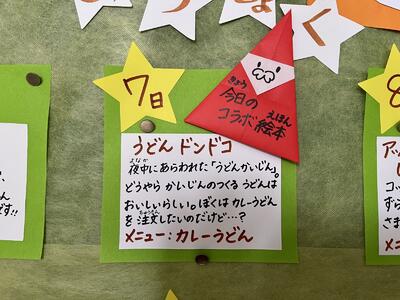 よく
7日
きょう
今日の
コラボ絵本
えほん
うどん ドンドコ
よなか
夜中にあらわれた「うどんかいじん」。
どうやら かいじんのつくる うどんは
おいしいらしい。ぼくは カレーうどん
ちゅうもん
を 注文したいのだけど…?
メニュー:カレーうどん
です!!
8
アッ
コッ
ずら
さま
メニ